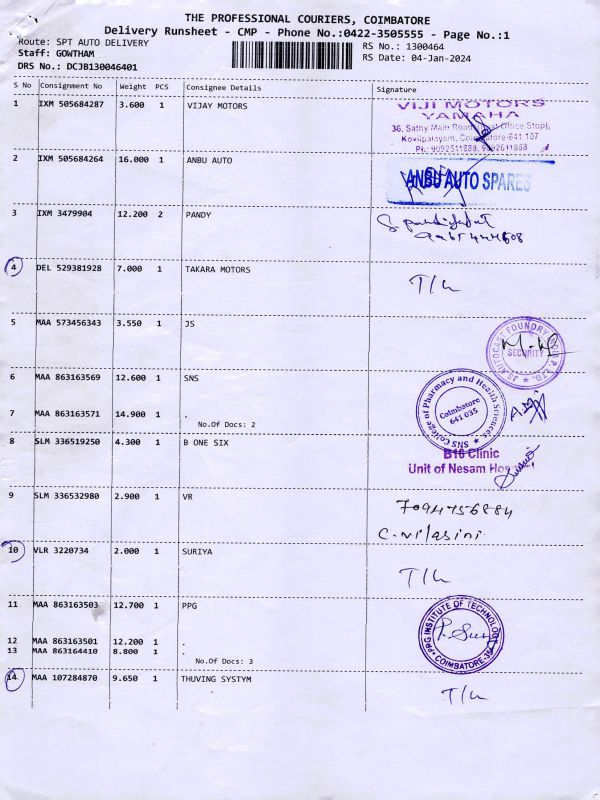 THE PROFESSIONAL COURIERS, COIMBATORE
Delivery Runsheet - CMP - Phone No.:0422-3505555 - Page No.:1
Route: SPT AUTO DELIVERY
Staff: GOWTHAM
DRS No.: DCJB130046401
RS No.: 1300464
RS Date: 04-Jan-2024
S No Consignment No Weight PCS Consignee Details Signature
1 IXM 505684287 3.600 1 VIJAY MOTORS
VIJI MOTORS
YAMAHA
36, Sathy Main Road, Office Stop),
Kovilpalayam, Coimbatore-641 107
Ph: 9092511888,
2 IXM 505684264 16.000 1 ANBU AUTO
ANBU AUTO SPARES
3 IXM 3479904 12.200 2 PANDY
4 DEL 529381928 7.000 1 TAKARA MOTORS
T/L
5 MAA 573456343 3.550 1 JS
JS AUTOCAST FOUNDRY
SECURITY
6 MAA 863163569 12.600 1 SNS
SNS College of Pharmacy and Health Sciences
Coimbatore
641 035
7 MAA 863163571 14.900 1 .
No.Of Docs: 2
8 SLM 336519250 4.300 1 B ONE SIX
B16 Clinic
Unit of Nesam
9 SLM 336532980 2.900 1 VR
7094756884
C.vilasini
10 VLR 3220734 2.000 1 SURIYA
T/L
11 MAA 863163503 12.700 1 PPG
PPG INSTITUTE OF TECHNOLOGY
COIMBATORE-35
12 MAA 863163501 12.200 1 .
13 MAA 863164410 8.800 1 .
No.Of Docs: 3
14 MAA 107284870 9.650 1 THUVING SYSTYM
T/L